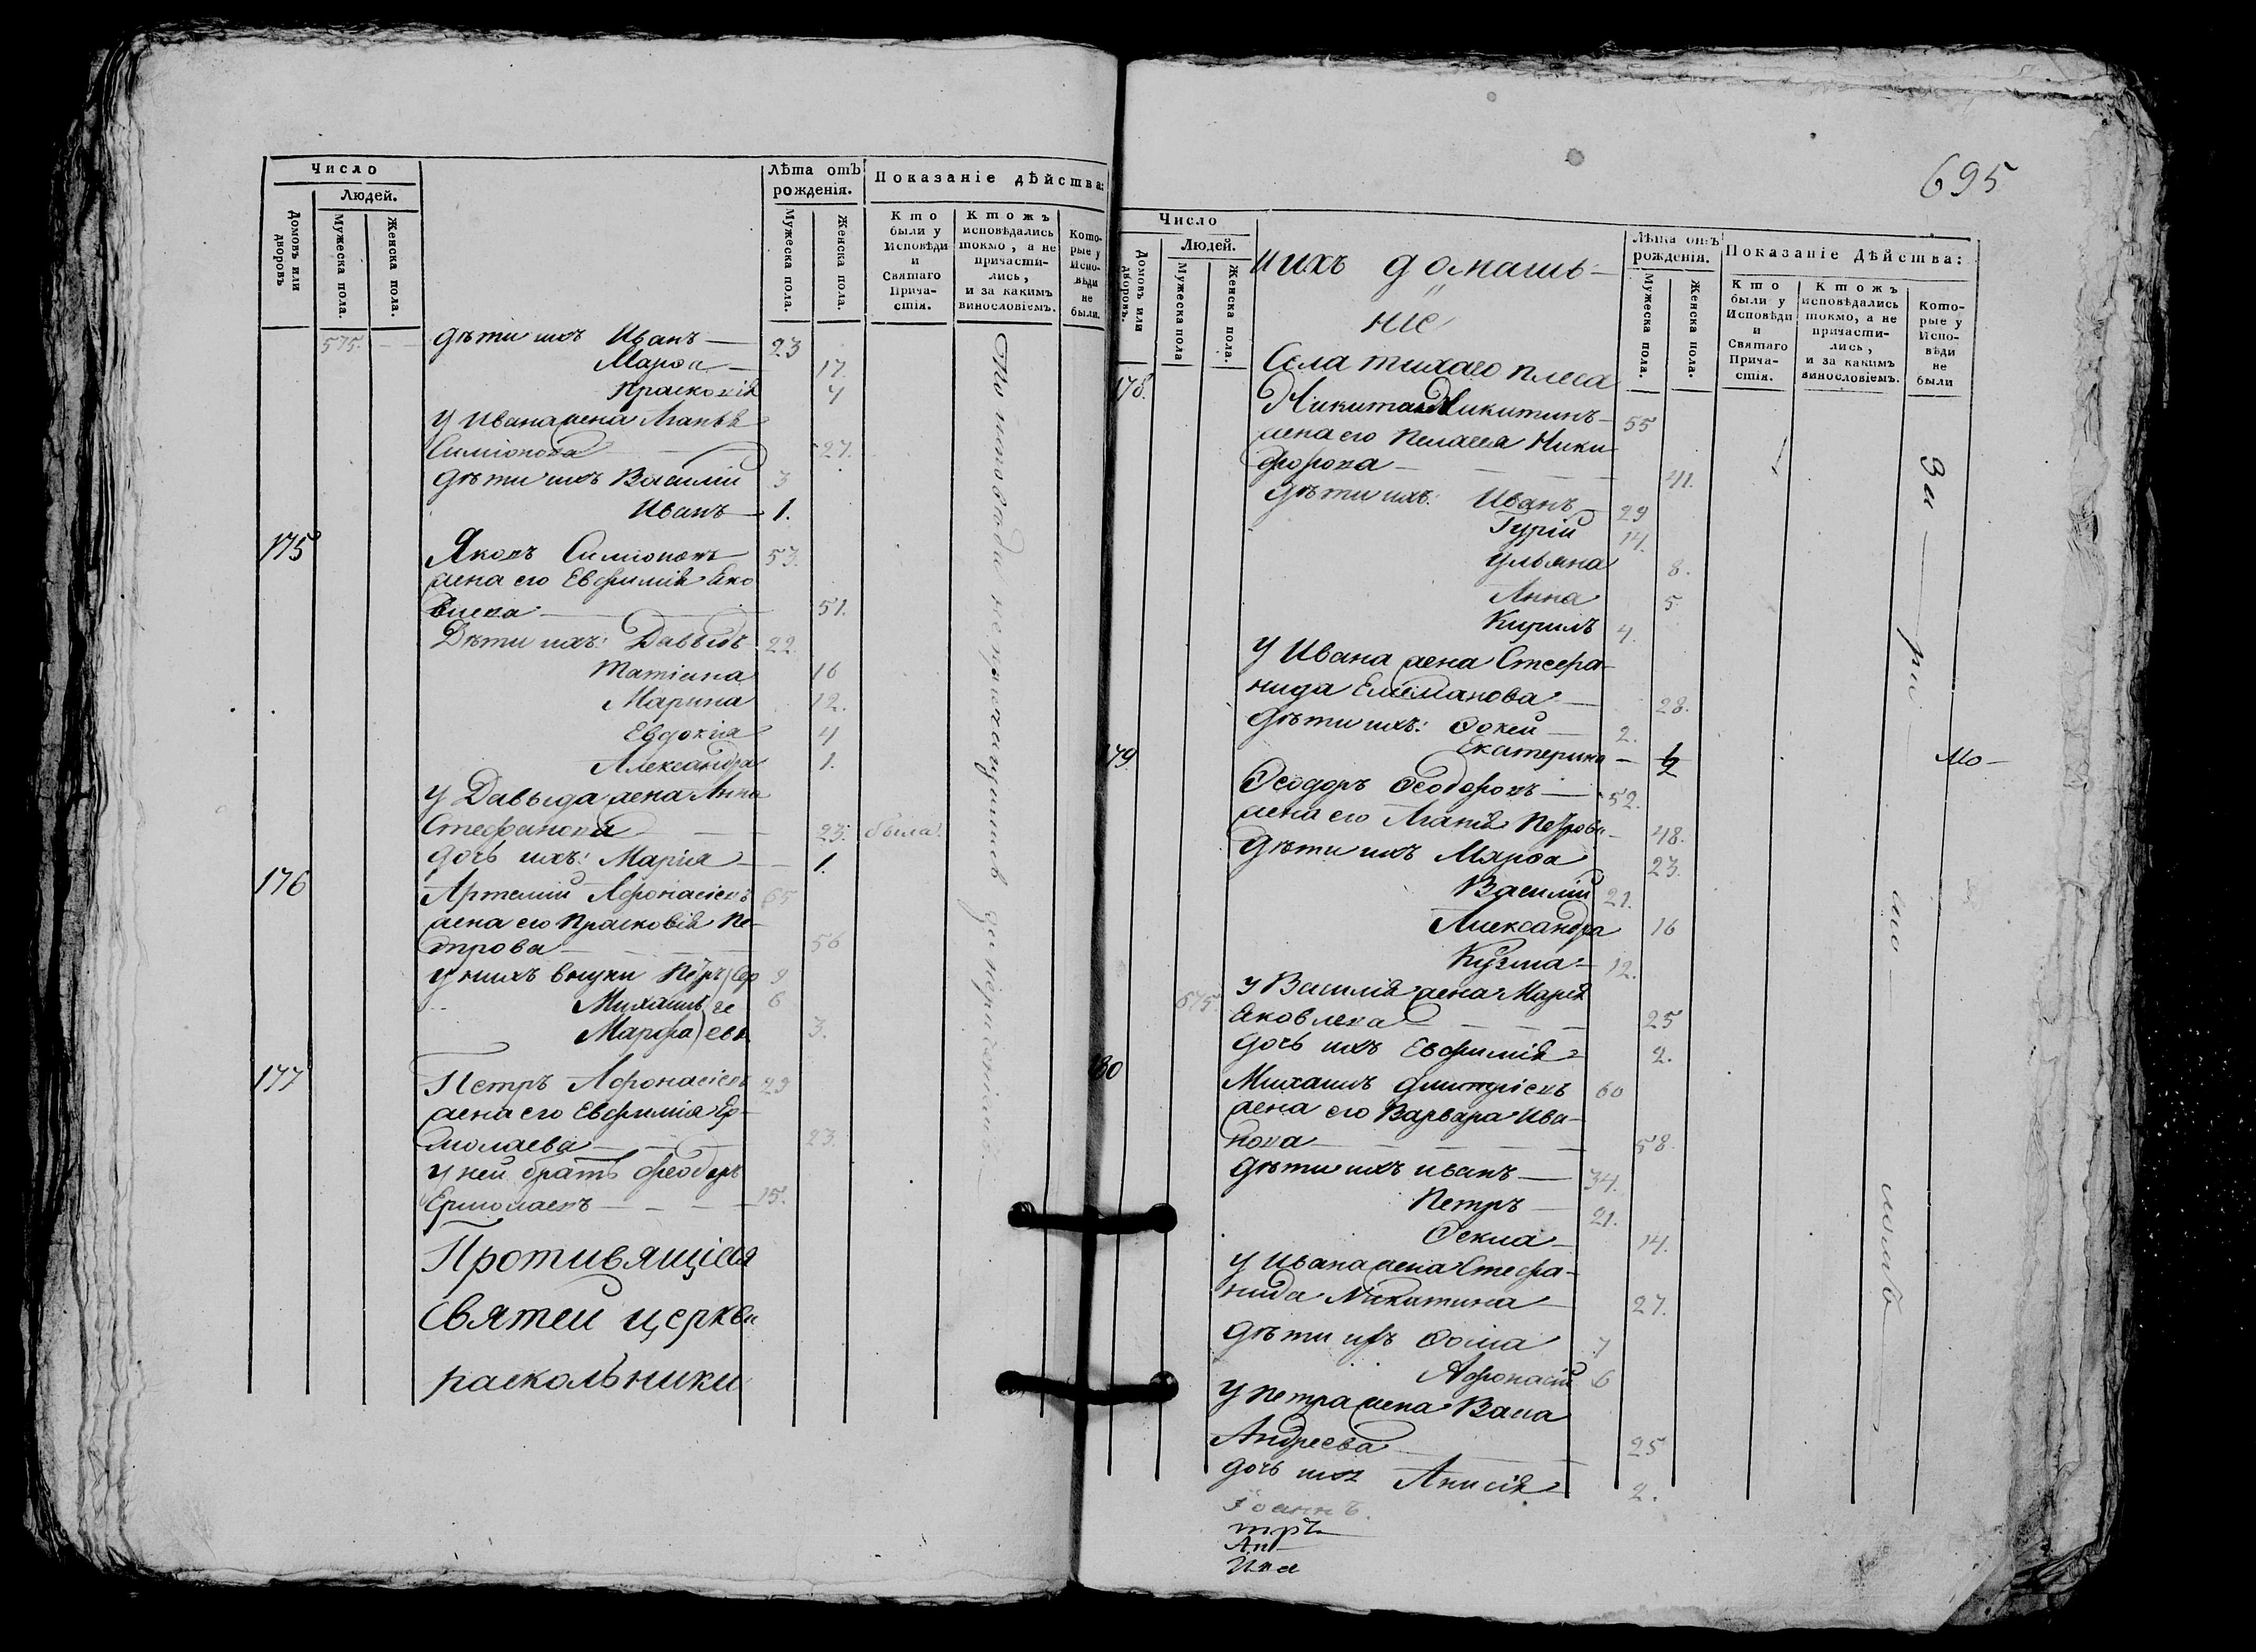 Число
Людей.
Домовъ или дворовъ
Мужеска пола.
Женска пола.
Лѣта отъ рожденія.
Мужеска пола.
Женска пола.
Показаніе дѣйства:
Кто были у Исповѣди и Святаго Прича-стія.
Ктожъ исповѣдались токмо, а не причасти-лись, и за какимъ винословіемъ.
Кото-рые у Испо-вѣди не были.
575. — — дѣти ихъ Иванъ — 23
Марѳа — 17.
Прасковія 4
у Ивана жена Агапія
Симіонова — 27.
дѣти ихъ Василій 3
Иванъ — 1.
175 Яковъ Симіоновъ 53.
жена его Евфимія Яко
влева — 51.
Дѣти ихъ: Давыдъ 22.
Татіана 16
Марина 12.
Евдокія 4
Александра 1.
у Давыда жена Анна
Стефанова — 23. была.
дочь ихъ: Марія — 1.
176 Артемій Афонасіевъ 65
жена его Прасковія Пе-
трова — 56
у нихъ внуки Петръ 9
Михаилъ 6
Марфа 3.
177 Петръ Афонасіевъ 29
жена его Евфимія Ер-
молаева — 23.
у ней братъ Феодоръ
Ермолаевъ — — — 15.
Противящіяся
святей церкви
раскольники
695
Число
Людей.
Домовъ или дворовъ.
Мужеска пола
Женска пола.
Лѣта отъ рожденія.
Мужеска пола.
Женска пола.
Показаніе дѣйства:
Кто были у Исповѣди и Святаго Прича-стія.
Ктожъ исповѣдались токмо, а не причасти-лись, и за какимъ винословіемъ.
Кото-рые у Испо-вѣди не были
ихъ домашь-
ніе
Села тихаго плеса
178. Никита Никитинъ — 55
жена его Пелагея Ники
форова — 41.
дѣти ихъ: Иванъ 29
Гурій 14.
Ульяна 8.
Анна 5.
Кирилъ 4.
у Ивана жена Стефа-
нида — 28.
дѣти ихъ: Фокей — 2.
Екатерина —
179. Ѳеодоръ Ѳеодоровъ — 52.
жена его Агапія Петрова — 48.
Дѣти ихъ Марѳа 23.
Василій 21.
Александра 16
Кузма — 12.
675. у Василія жена Марія
Яковлева — 25
дочь ихъ Евфимія 2.
180 Михаилъ Дмитріевъ 60
жена его Варвара Ива-
нова — 58.
дѣти ихъ Иванъ — 34.
Петръ — 21.
Ѳекла — 14.
у Ивана жена Стефа-
нида Никитина — 27.
дѣти ихъ Ѳома 7
Афонасій 6
у Петра жена Васа
Андреева — 25
дочь ихъ Анисія 2.
За — ри — сло — Мо —
Іоаннъ.